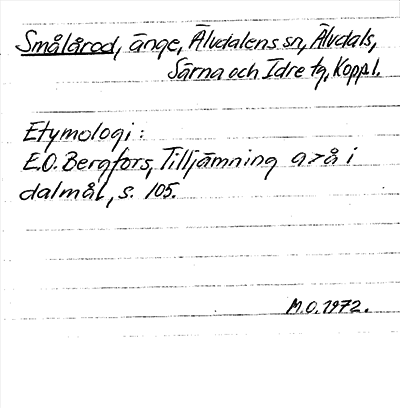 Smålårod, änge, Älvdalens sn, Älvdals,
Särna och Idre tg, Koppl.
Etymologi:
E.O. Bergfors, Tilljämning a>å i
dalmål, s. 105.
M.O. 1972.